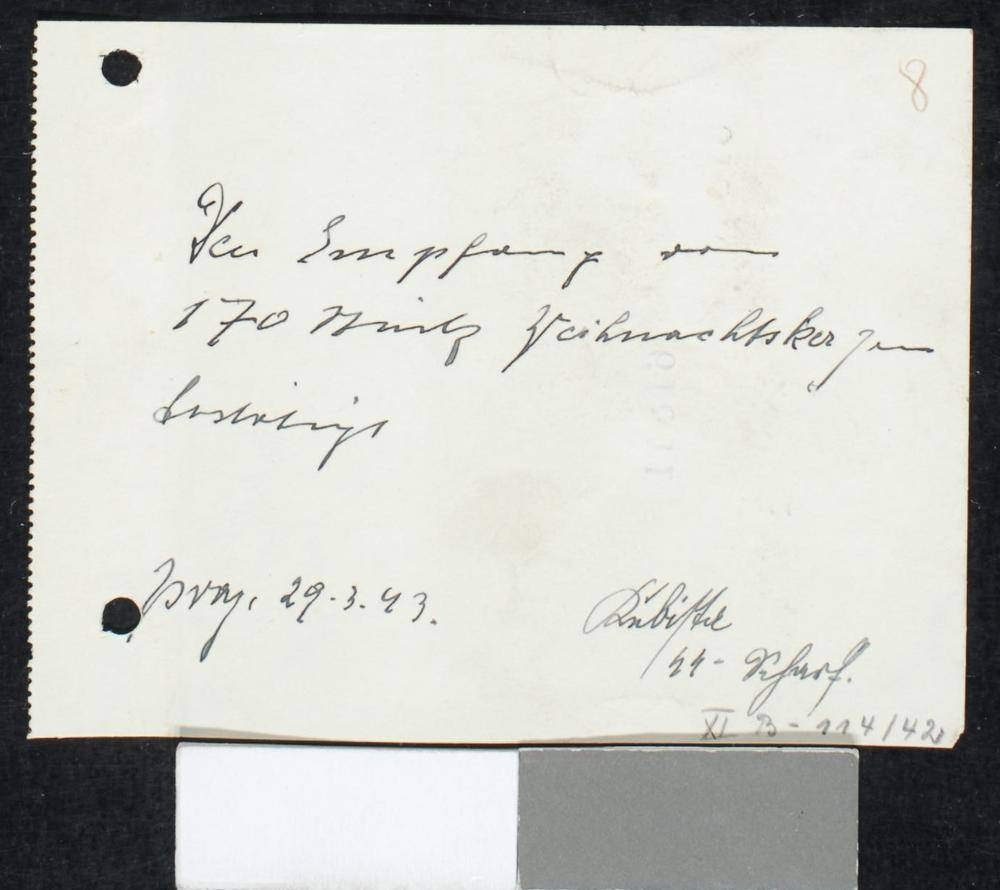 8
Den Empfang von
170 Stück Weihnachtskerzen
bestätigt
Prag, 29.3.43.
SS-Scharf.
XI B-114/42